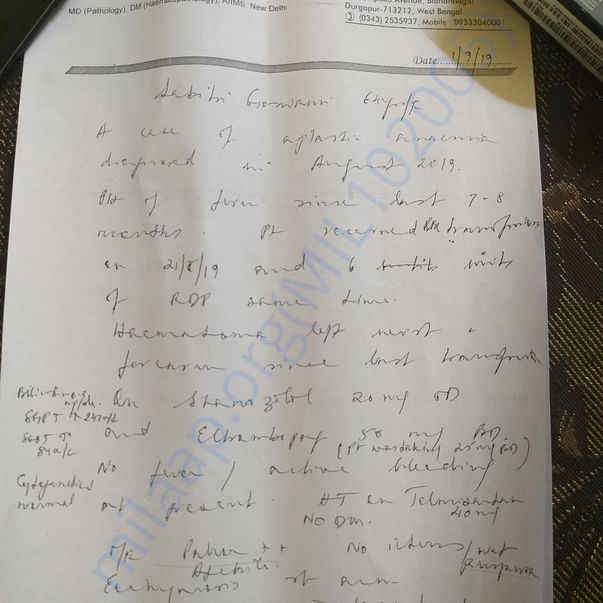 MD (Pathology), DM (Haematopathology), AIIMS, New Delhi
Avenue, Bidhannagar
Durgapur-713212, West Bengal
(0343) 2535937, Mobile : 0933304000
Date 1/9/19
Goswami 64yr/F
A case of aplastic anaemia
diagnosed in August 2019.
of fever since last 7-8
months. Pt received transfusion
on 21/8/19 and 6 units
of RDP same time.
Haematoma left wrist &
forearm since last transfusion
Bilirubin
SGPT
SGOT
84u/L
On Stanozolol 20 mg OD
and Eltrombopag 50 mg BD
(Pt was taking 25 mg BD)
Cytogenetics
normal
No fever / active bleeding
at present. HT on Telmisartan
40mg
NO DM.
O/E Pallor ++ No icterus/
Afebrile.
Ecchymosis at arm.
milaap.org(MIL1020005)